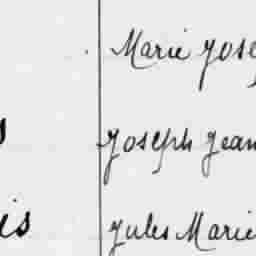 Marie Jose
Joseph Jean
is Jules Marie